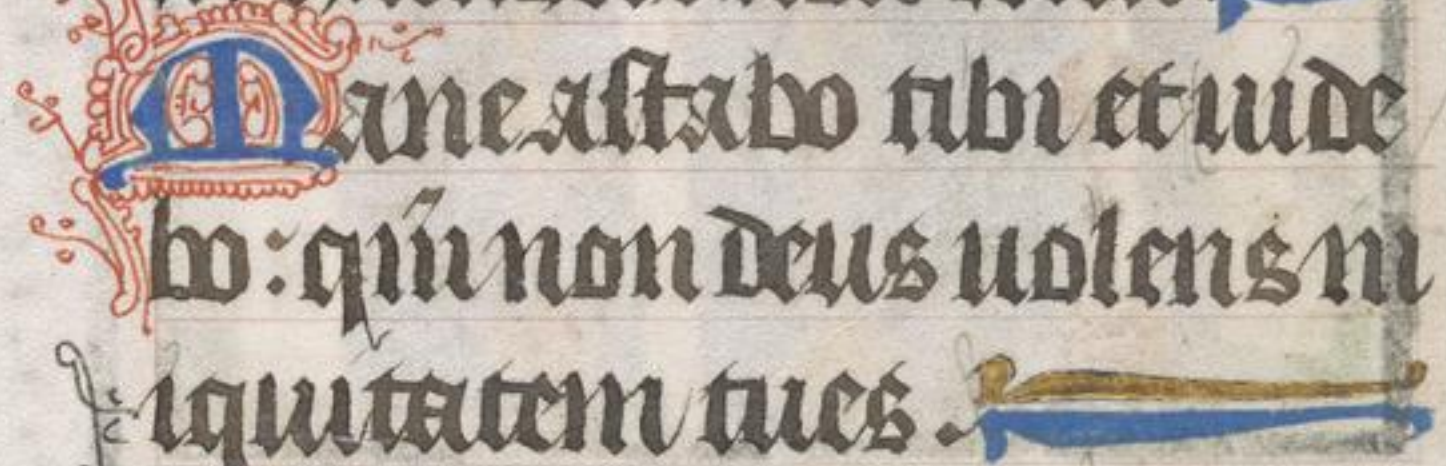 Mane astabo tibi et uide
bo : qm̄ non deus uolens in
iquitatem tu es .